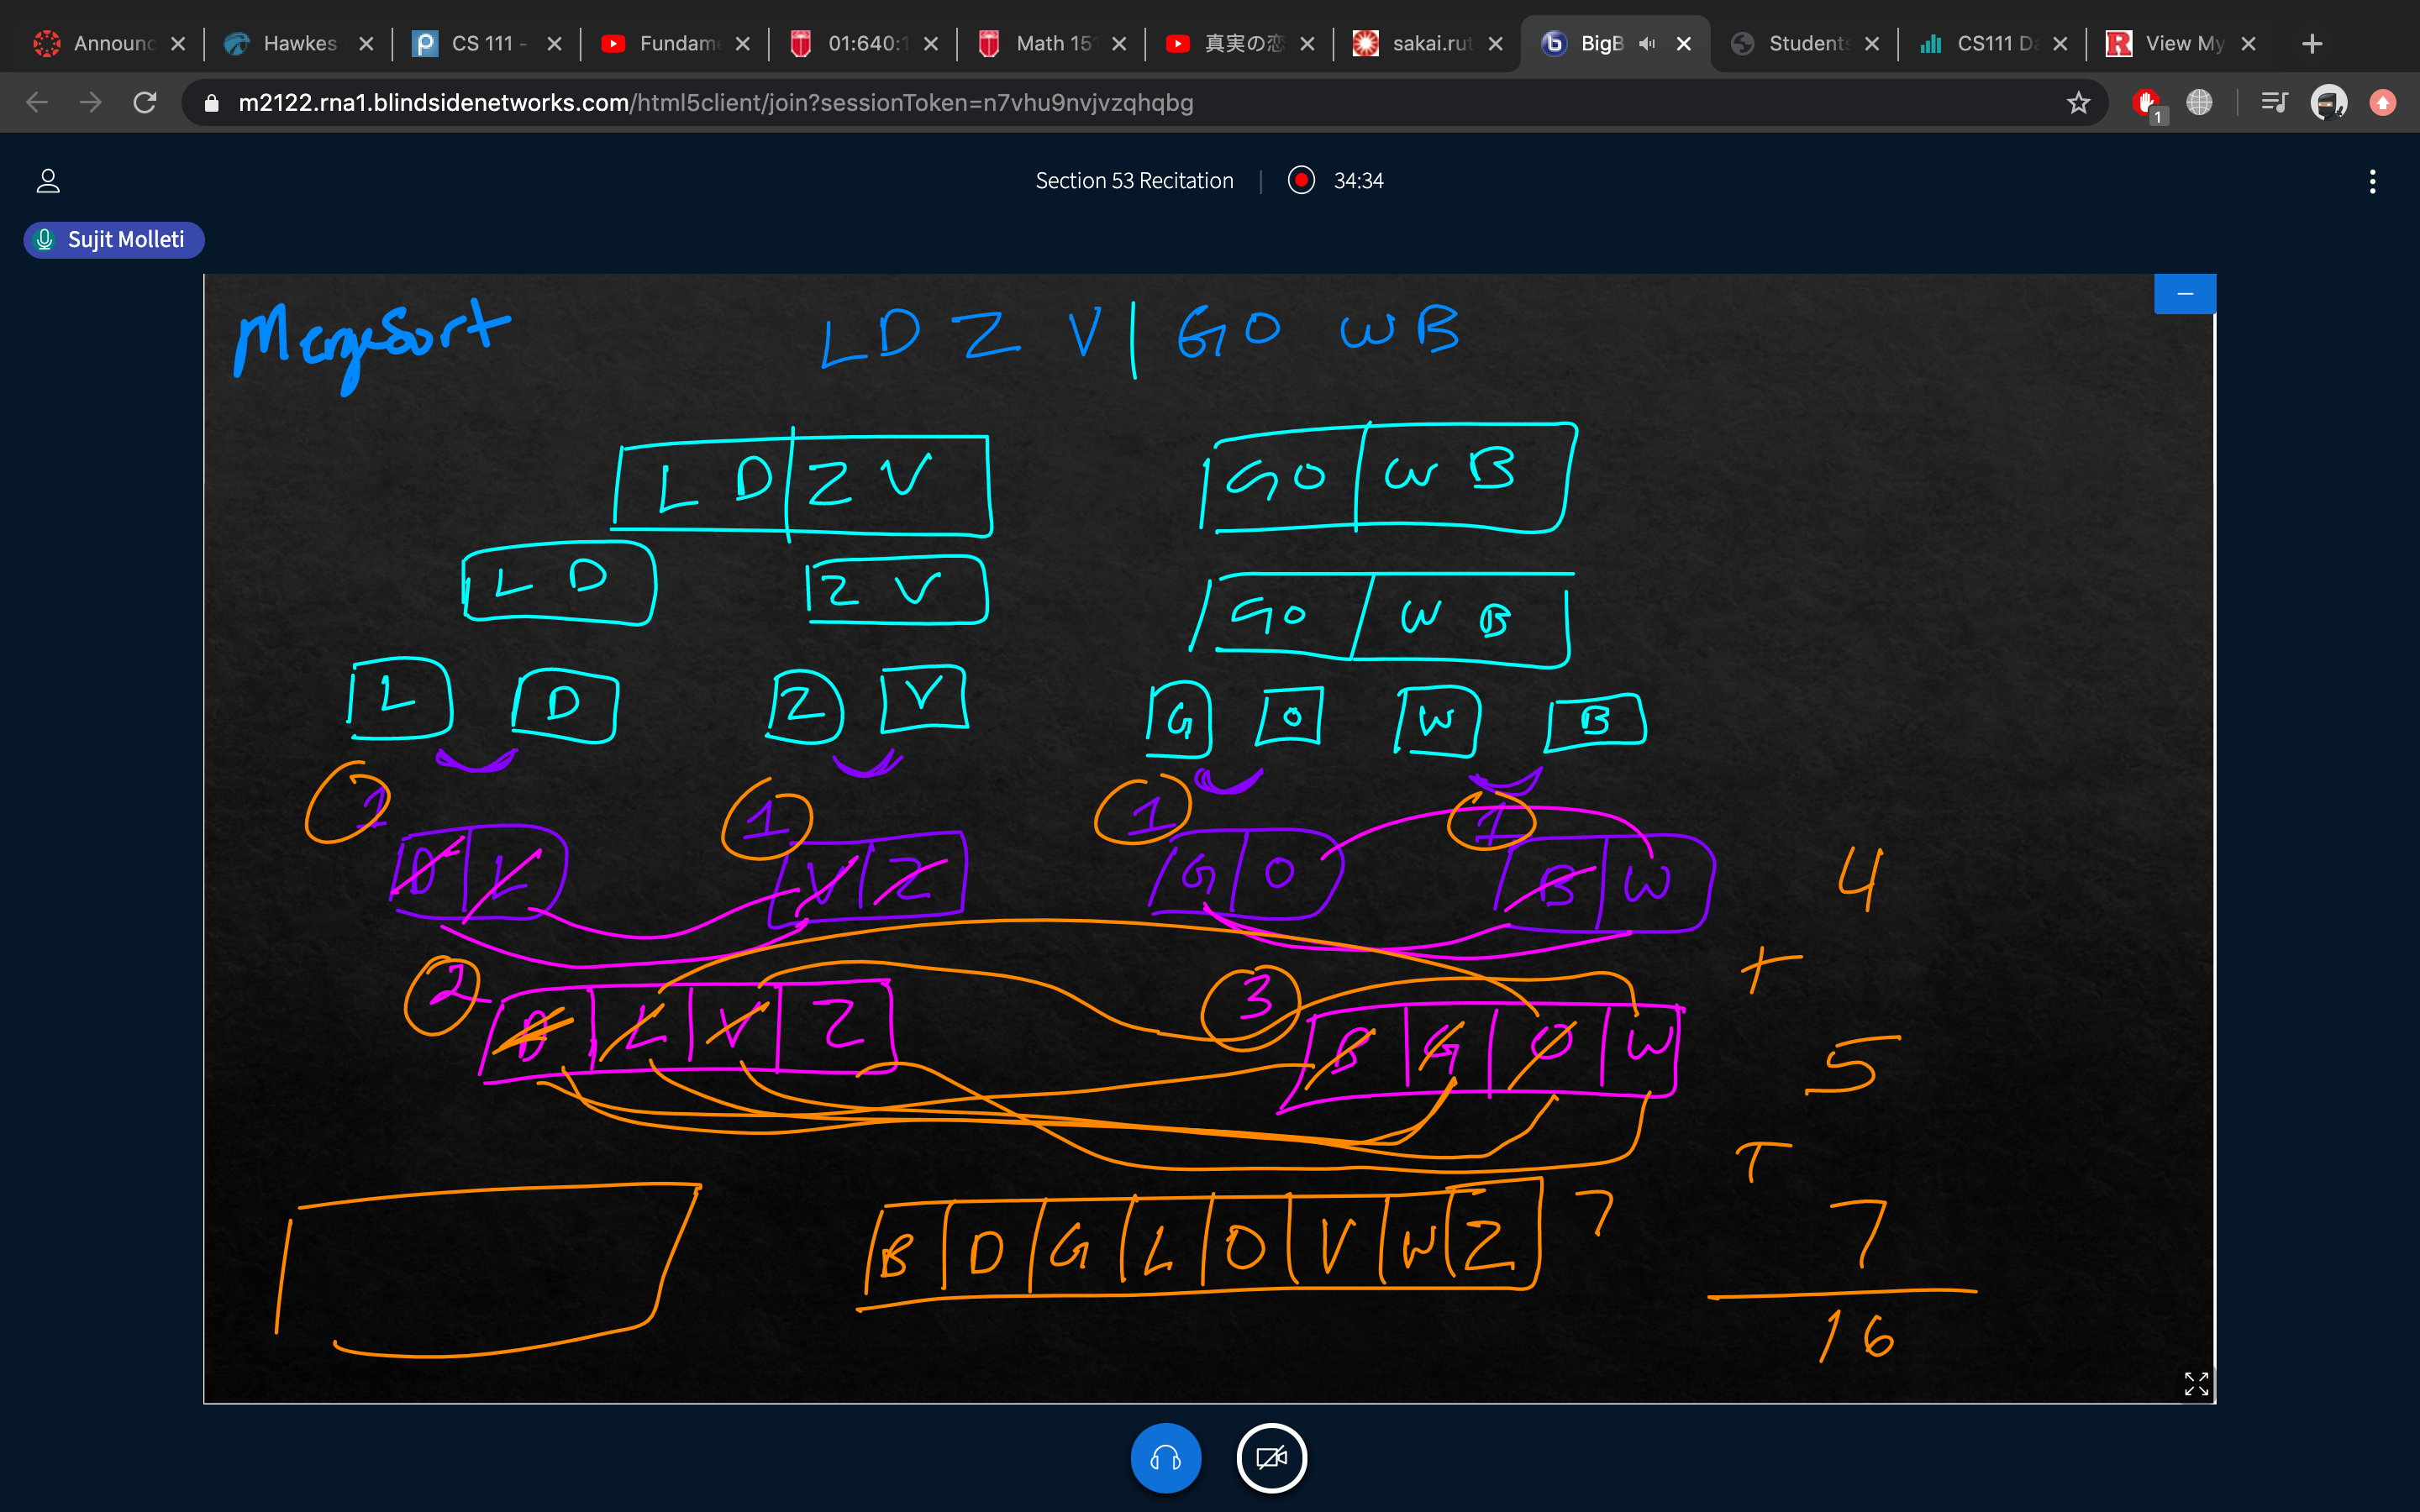 Announc Hawkes CS 111 - Fundam 01:640:1 Math 15 真実の恋 sakai.rut BigB Students CS111 Da View My
m2122.rna1.blindsidenetworks.com/html5client/join?sessionToken=n7vhu9nvjvzqhqbg
1
Section 53 Recitation | 34:34
Sujit Molleti
MergeSort L D Z V | G O W B
L D Z V G O W B
L D Z V G O W B
L D Z V G O W B
1 1 1 1
D L V Z G O B W 4
+
2 D L V Z 3 B G O W 5
+
B D G L O V W Z 7 7
16